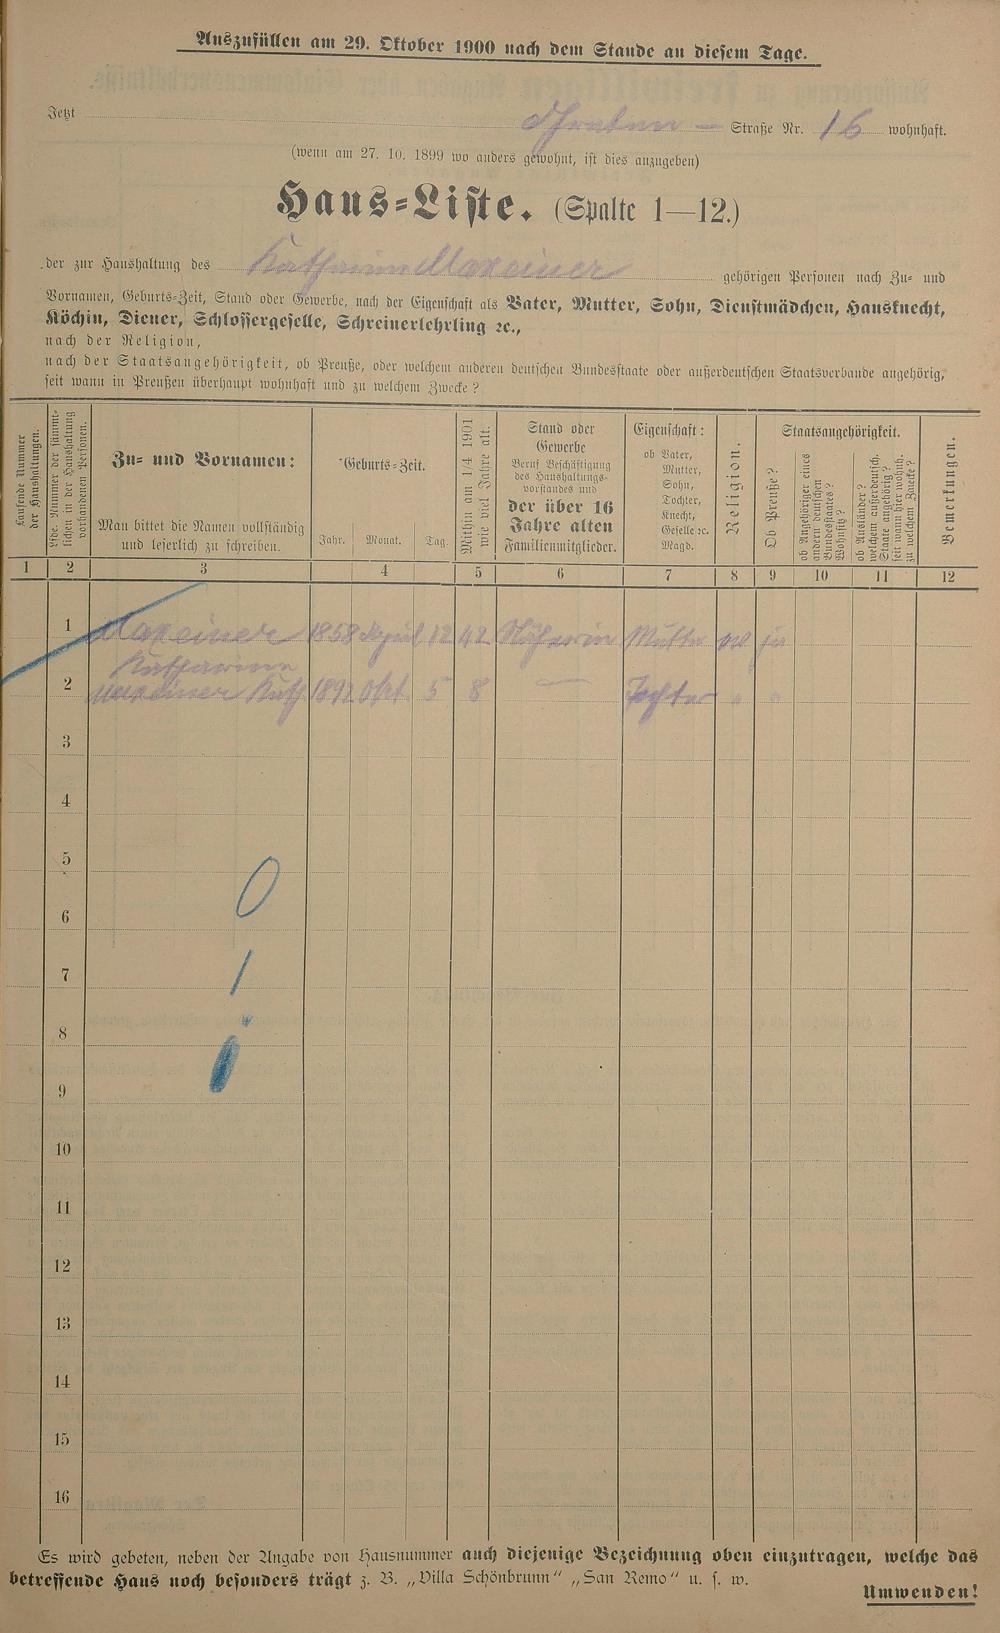 Auszufüllen am 29. Oktober 1900 nach dem Stande an diesem Tage.
Jetzt — Straße Nr. 16 wohnhaft.
(wenn am 27. 10. 1899 wo anders gewohnt, ist dies anzugeben)
Haus-Liste. (Spalte 1—12.)
der zur Haushaltung des Katharina Maxeiner gehörigen Personen nach Zu- und
Vornamen, Geburts-Zeit, Stand oder Gewerbe, nach der Eigenschaft als Vater, Mutter, Sohn, Dienstmädchen, Hausknecht,
Köchin, Diener, Schlossergeselle, Schreinerlehrling ec.,
nach der Religion,
nach der Staatsangehörigkeit, ob Preuße, oder welchem anderen deutschen Bundesstaate oder außerdeutschen Staatsverbande angehörig,
seit wann in Preußen überhaupt wohnhaft und zu welchem Zwecke?
Laufende Nummer
der Haushaltungen.
Lfde. Nummer der sämmt-
lichen in der Haushaltung
vorhandenen Personen.
Zu- und Vornamen:
Man bittet die Namen vollständig
und leserlich zu schreiben.
Geburts-Zeit.
Jahr. Monat. Tag.
Mithin am 1/4 1901
wie viel Jahre alt.
Stand oder
Gewerbe
Beruf Beschäftigung
des Haushaltungs-
vorstandes und
der über 16
Jahre alten
Familienmitglieder.
Eigenschaft:
ob Vater,
Mutter,
Sohn,
Tochter,
Knecht,
Geselle ec.
Magd.
Religion.
Staatsangehörigkeit.
Ob Preuße?
ob Angehöriger eines
andern deutschen
Bundesstaates?
Wohnsitz?
ob Ausländer?
welchem außerdeutsch.
Staate angehörig?
seit wann hier wohnh.
zu welchem Zwecke?
Bemerkungen.
1 2 3 4 5 6 7 8 9 10 11 12
1 Maxeiner 1858 April 12 42 Näherin Mutter ja
Katharina
2 Maxeiner Kath 1892 Okt. 5 8 — Tochter " "
3
4
5
0
6
7 1
8
9
10
11
12
13
14
15
16
Es wird gebeten, neben der Angabe von Hausnummer auch diejenige Bezeichnung oben einzutragen, welche das
betreffende Haus noch besonders trägt z. B. „Villa Schönbrunn" „San Remo" u. s. w.
Umwenden!